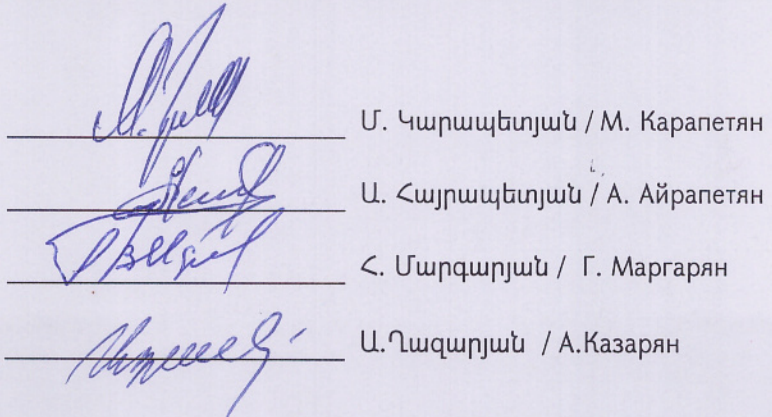 Մ. Կարապետյան / М. Карапетян
Ա. Հայրապետյան / А. Айрапетян
Հ. Մարգարյան / Г. Маргарян
Ա.Ղազարյան / А.Казарян